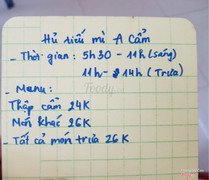 Hủ tiếu mì A Cẩm
- Thời gian: 5h30 - 11h (sáng)
11h - 14h (Trưa)
- Menu:
Thập cẩm 24K
Món khác 26K
- Tất cả món trưa 26K
Foody